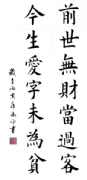 前世無財當過客
今生愛字未為貧